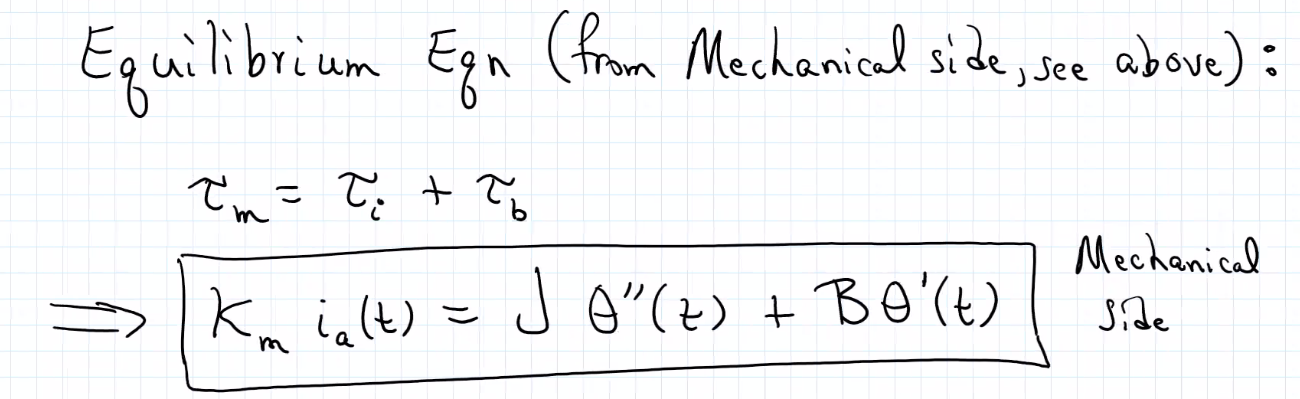 Equilibrium Eqn (from Mechanical side, see above):
τₘ = τᵢ + τ_b
⟹ Kₘ iₐ(t) = J θ″(t) + B θ′(t)
Mechanical
Side